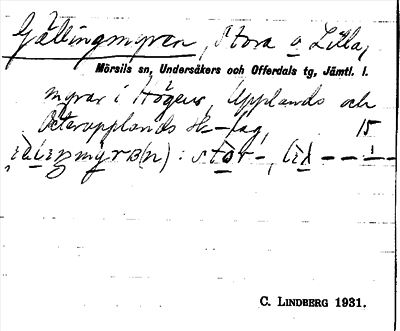 Gällingmyran, Stora o Lilla,
Mörsils sn, Undersåkers och Offerdals tg, Jämtl. l.
myrar i Högens, Upplands och
Österupplands sk-lag, 15
C. LINDBERG 1931.